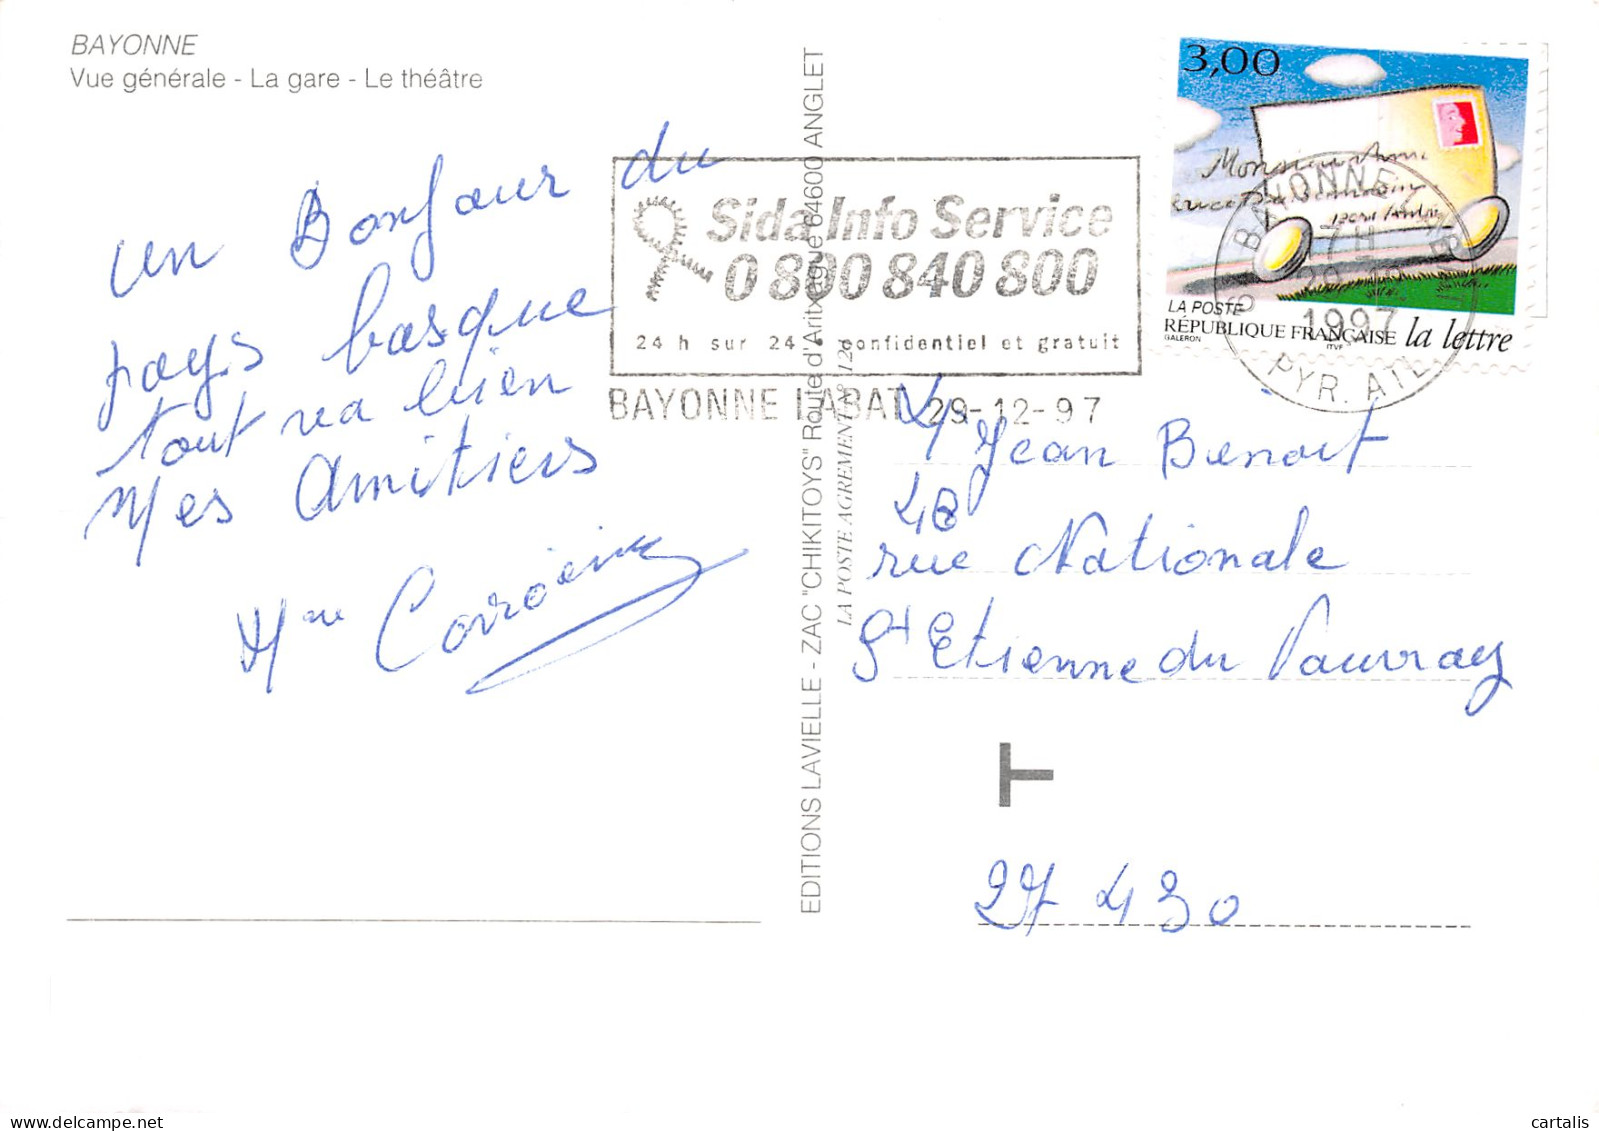 BAYONNE
Vue générale - La gare - Le théâtre
un Bonjour du
pays basque
tout va bien
Mes Amitiers
Mme
EDITIONS LAVIELLE - ZAC "CHIKITOYS" Route d'Aritxague 64600 ANGLET
LA POSTE AGREMENT N° 124
Sida Info Service
0 800 840 800
24 h sur 24. confidentiel et gratuit
BAYONNE LABAT 29-12-97
3,00
Monsieur
LA POSTE
RÉPUBLIQUE FRANÇAISE la lettre
GALERON ITVF
BAYONNE
7 H
29-12
1997
PYR. ATL
Mr Jean Benoit
48
rue Nationale
St Etienne du Vauvray
T
27 430
cartalis